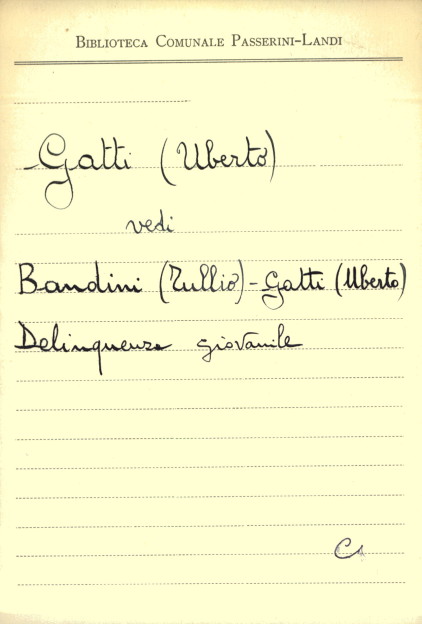 BIBLIOTECA COMUNALE PASSERINI-LANDI
Gatti (Uberto)
vedi
Bandini (Tullio) - Gatti (Uberto)
Delinquenza giovanile